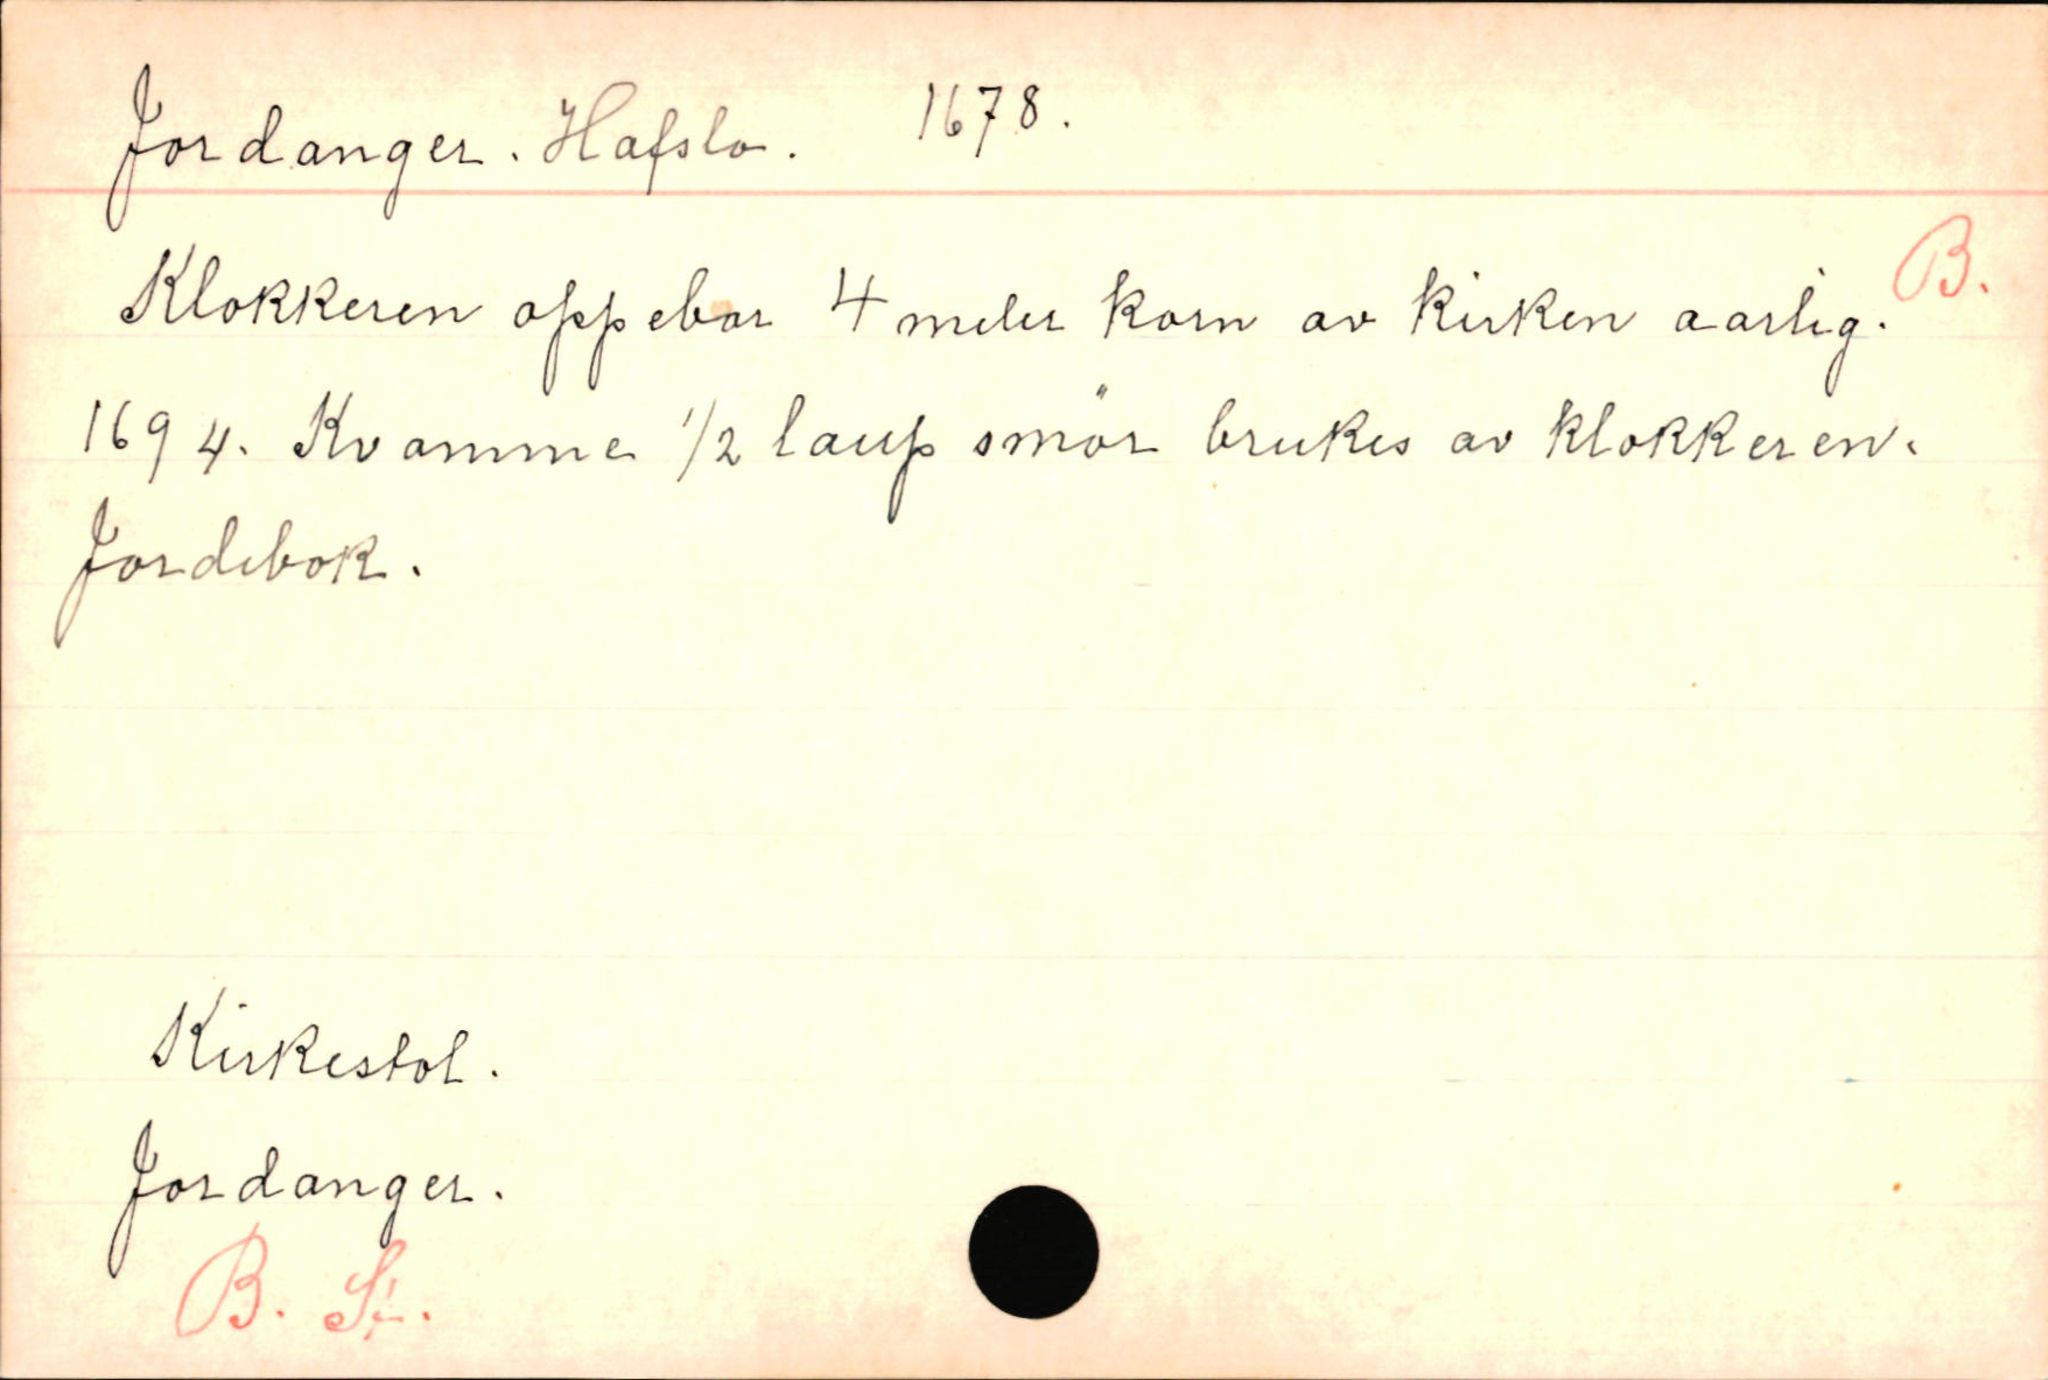 Jordanger. Hafslo. 1678.
B.
Klokkeren oppebar 4 meler korn av kirken aarlig.
1694. Kvamme 1/2 laup smör brukes av klokkeren.
Jordebok.
Kirkestol.
Jordanger.
B. St.